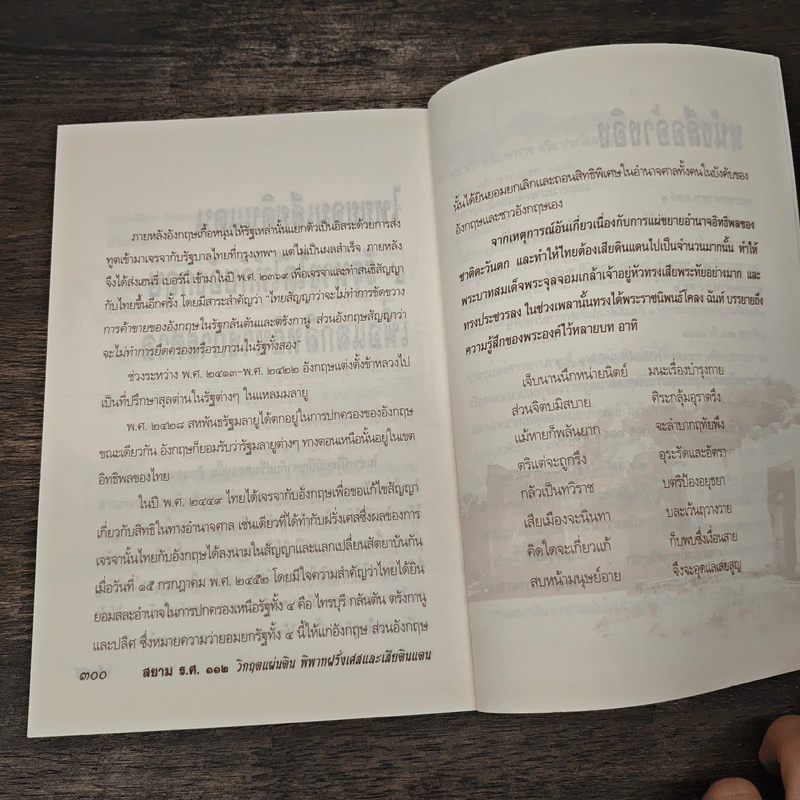 ภายหลังอังกฤษเกื้อหนุนให้รัฐเหล่านั้นแยกตัวเป็นอิสระด้วยการส่ง
ทูตเข้ามาเจรจากับรัฐบาลไทยที่กรุงเทพฯ แต่ไม่เป็นผลสำเร็จ ภายหลัง
จึงได้ส่งเฮนรี่ เบอร์นี่ เข้ามาในปี พ.ศ. ๒๓๖๙ เพื่อเจรจาและทำสนธิสัญญา
กับไทยขึ้นอีกครั้ง โดยมีสาระสำคัญว่า "ไทยสัญญาว่าจะไม่ทำการขัดขวาง
การค้าขายของอังกฤษในรัฐกลันตันและตรังกานู ส่วนอังกฤษสัญญาว่า
จะไม่ทำการยึดครองหรือรบกวนในรัฐทั้งสอง"
ช่วงระหว่าง พ.ศ. ๒๔๑๓-พ.ศ. ๒๔๒๒ อังกฤษแต่งตั้งข้าหลวงไป
เป็นที่ปรึกษาสุลต่านในรัฐต่างๆ ในแหลมมลายู
พ.ศ. ๒๔๒๘ สหพันธรัฐมลายูได้ตกอยู่ในการปกครองของอังกฤษ
ขณะเดียวกัน อังกฤษก็ยอมรับว่ารัฐมลายูต่างๆ ทางตอนเหนือนั้นอยู่ในเขต
อิทธิพลของไทย
ในปี พ.ศ. ๒๔๔๙ ไทยได้เจรจากับอังกฤษเพื่อขอแก้ไขสัญญา
เกี่ยวกับสิทธิในทางอำนาจศาล เช่นเดียวที่ได้ทำกับฝรั่งเศสซึ่งผลของการ
เจรจานั้นไทยกับอังกฤษได้ลงนามในสัญญาและแลกเปลี่ยนสัตยาบันกัน
เมื่อวันที่ ๑๕ กรกฎาคม พ.ศ. ๒๔๕๒ โดยมีใจความสำคัญว่าไทยได้ยิน
ยอมสละอำนาจในการปกครองเหนือรัฐทั้ง ๔ คือ ไทรบุรี กลันตัน ตรังกานู
และปลิศ ซึ่งหมายความว่ายอมยกรัฐทั้ง ๔ นี้ให้แก่อังกฤษ ส่วนอังกฤษ
๓๐๐ สยาม ร.ศ. ๑๑๒ วิกฤตแผ่นดิน พิพาทฝรั่งเศสและเสียดินแดน
นั้นได้ยินยอมยกเลิกและถอนสิทธิพิเศษในอำนาจศาลทั้งคนในบังคับของ
อังกฤษและชาวอังกฤษเอง
จากเหตุการณ์อันเกี่ยวเนื่องกับการแผ่ขยายอำนาจอิทธิพลของ
ชาติตะวันตก และทำให้ไทยต้องเสียดินแดนไปเป็นจำนวนมากนั้น ทำให้
พระบาทสมเด็จพระจุลจอมเกล้าเจ้าอยู่หัวทรงเสียพระทัยอย่างมาก และ
ทรงประชวรลง ในช่วงเพลานั้นทรงได้พระราชนิพนธ์โคลง ฉันท์ บรรยายถึง
ความรู้สึกของพระองค์ไว้หลายบท อาทิ
เจ็บนานนึกหน่ายนิตย์ มนะเรื่องบำรุงกาย
ส่วนจิตบมิสบาย ศิระกลุ้มอุราตรึง
แม้หายก็พลันยาก จะลำบากฤทัยพึง
ตริแต่จะถูกรึ้ง อุระรัดและอัตรา
กลัวเป็นทวิราช บตริป้องอยุธยา
เสียเมืองจะนินทา บละเว้นฤวางวาย
คิดใดจะเกี่ยวแก้ ก็บพบซึ่งเงื่อนสาย
สบหน้ามนุษย์อาย จึงจะอุดแลเสยสูญ